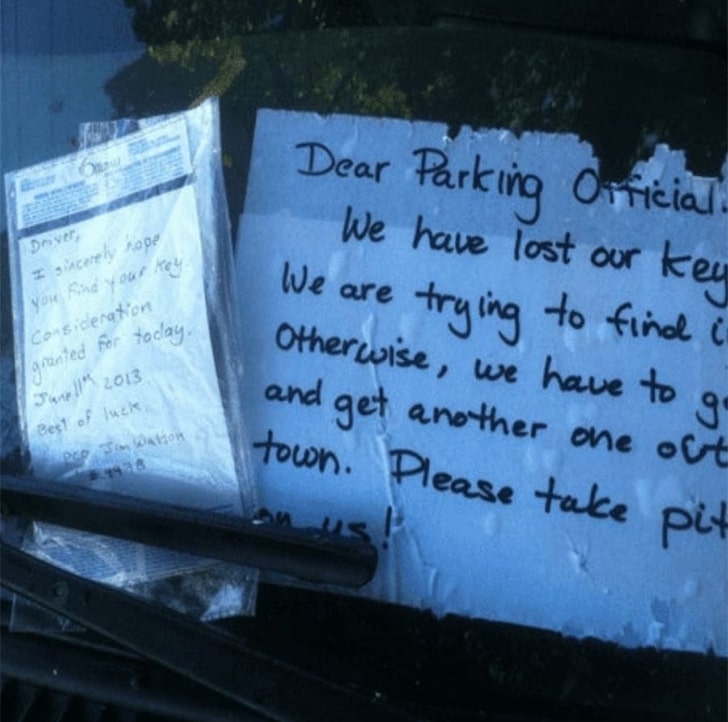 Driver,
I sincerely hope
you find your key
Consideration
granted for today.
June 11th 2013
Best of luck.
PCO Jim Watson
Dear Parking Official.
We have lost our key
We are trying to find i
Otherwise, we have to g
and get another one out
town. Please take pit
on us!